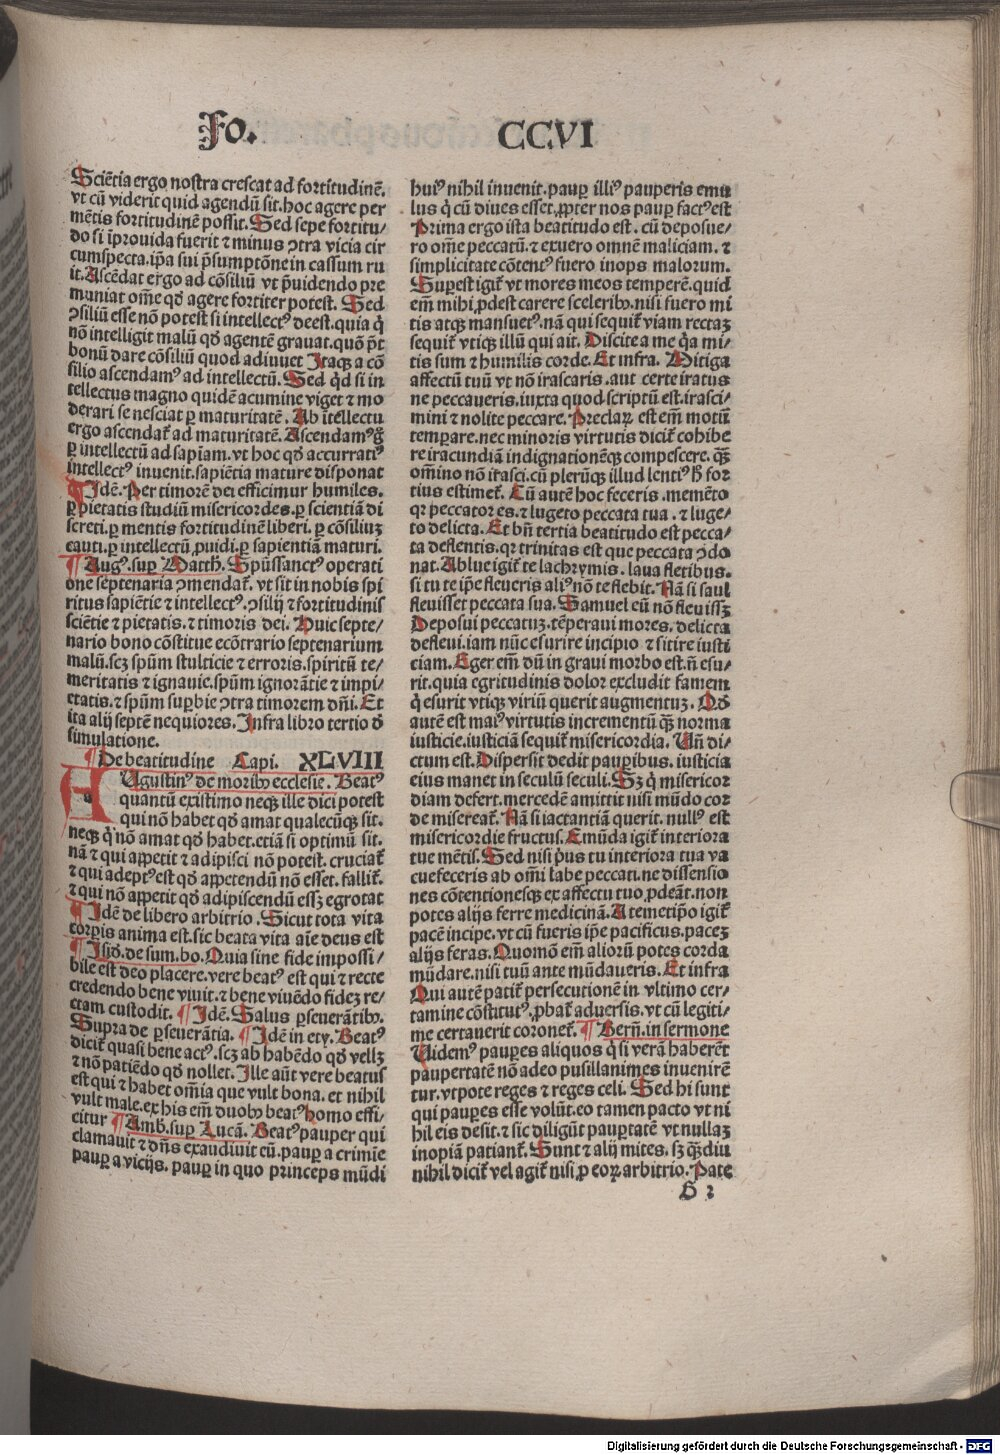 Fo. CCVI
Sciētia ergo nostra crescat ad fortitudinē.
vt cū viderit quid agendū sit. hoc agere per
mētis fortitudinē possit. Sed sepe fortitu⸗
do si īprouida fuerit ⁊ minus ꝯtra vicia cir
cumspecta. ip̄a sui p̄sumptōne in cassum ru
it. Ascēdat ergo ad cōsiliū vt p̄uidendo pre
muniat om̄e qd̓ agere fortiter potest. Sed
ꝯsiliū esse nō potest si intellectꝰ deest. quia q̇
nō intelligit malū qd̓ agentē grauat. quō p̄t
bonū dare cōsiliū quod adiuuet Itaqꝫ a cō
silio ascendamꝰ ad intellectū. Sed qd̓ si in
tellectus magno quidē acumine viget ⁊ mo
derari se nesciat ꝑ maturitatē. Ab ītellectu
ergo ascendat̄ ad maturitatē. Ascendamꝰ g̊
ꝑ intellectū ad sapīam. vt hoc qd̓ accuratiꝰ
intellectꝰ inuenit. sapiētia mature disponat
¶ Idē. Per timorē dei efficimur humiles.
ꝑ pietatis studiū misericordes. ꝑ scientiā di
screti. ꝑ mentis fortitudinē liberi. ꝑ cōsiliuꝫ
cauti. ꝑ intellectū ꝓuidi. ꝑ sapientiā maturi.
¶ Augꝰ. suꝑ Matth̓. Spūssanctꝰ operati
one septenaria ꝯmendat̄. vt sit in nobis spi
ritus sapiētie ⁊ intellectꝰ. ꝯsilij ⁊ fortitudinis
sciētie ⁊ pietatis. ⁊ timoris dei. Huic septe⸗
nario bono cōstitue ecōtrario septenarium
malū. scꝫ spūm stulticie ⁊ erroris. spiritū te⸗
meritatis ⁊ ignauie. spūm ignorātie ⁊ impi⸗
etatis. ⁊ spūm suꝑbie ꝯtra timorem dn̄i. Et
ita alij septē nequiores. Infra libro tertio d̓
simulatione.
¶ De beatitudine Capi. XLVIII
AUgustinꝰ de moribꝫ ecclesie. Beatꝰ
quantū existimo neqꝫ ille dici potest
qui nō habet qd̓ amat qualecūqꝫ sit.
neqꝫ q̇ nō amat qd̓ habet. etiā si optimū sit.
nā ⁊ qui appetit ⁊ adipisci nō potest. cruciat̄
⁊ qui adeptꝰ est qd̓ appetendū nō esset. fallit̄.
⁊ qui nō appetit qd̓ adipiscendū essꝫ egrotat
¶ Idē de libero arbitrio. Sicut tota vita
corpis anima est. sic beata vita aīe deus est
¶ Isid̓. de sum. bo. Quia sine fide impossi⸗
bile est deo placere. vere beatꝰ est qui ⁊ recte
credendo bene viuit. ⁊ bene viuēdo fideꝫ re⸗
ctam custodit. ¶ Idē. Salus ꝑseuerātibꝫ.
Supra de ꝑseuerātia. ¶ Idē in ety. Beatꝰ
dicit̄ quasi bene actꝰ. scꝫ ab habēdo qd̓ vellꝫ
⁊ nō patiēdo qd̓ nollet. Ille aūt vere beatus
est qui ⁊ habet om̄ia que vult bona. et nihil
vult male. ex his em̄ duobꝫ beatꝰ homo effi⸗
citur ¶ Amb̓. suꝑ Lucā. Beatꝰ pauper qui
clamauit ⁊ dn̄s exaudiuit eū. pauꝑ a crimie
pauꝑ a vicijs. pauꝑ in quo princeps mūdi
huiꝰ nihil inuenit. pauꝑ illiꝰ pauperis emu
lus q̇ cū diues esset. ꝓpter nos pauꝑ factꝰ est
Prima ergo ista beatitudo est. cū deposue⸗
ro om̄e peccatū. ⁊ exuero omnē maliciam. ⁊
simplicitate cōtentꝰ fuero inops malorum.
Suꝑest igit̄ vt mores meos temperē. quid
em̄ mihi ꝓdest carere sceleribꝫ. nisi fuero mi
tis atqꝫ mansuetꝰ. nā qui sequit̄ viam rectaꝫ
sequit̄ vtiqꝫ illū qui ait. Discite a me q̇a mi⸗
tis sum ⁊ humilis corde. Et infra. Mitiga
affectū tuū vt nō irascaris. aut certe iratus
ne peccaueris. iuxta quod scriptū est. irasci⸗
mini ⁊ nolite peccare. Preclarꝝ est em̄ motū
temꝑare. nec minoris virtutis dicit̄ cohibe
re iracundiā indignationēqꝫ compescere. qꝫ̄
om̄ino nō irasci. cū plerūqꝫ illud lentiꝰ h̓ for
tius estimet̄. Cū autē hoc feceris. memēto
qꝛ peccator es. ⁊ lugeto peccata tua. ⁊ luge⸗
to delicta. Et bn̄ tertia beatitudo est pecca⸗
ta deflentis. qꝛ trinitas est que peccata ꝯdo
nat. Ablue igit̄ te lachrymis. laua fletibus.
si tu te ip̄e fleueris aliꝰ nō te flebit. Nā si saul
fleuisset peccata sua. Samuel eū nō fleuissꝫ
Deposui peccatuꝫ. tēperaui mores. delicta
defleui. iam nūc esurire incipio ⁊ sitire iusti
ciam. Eger em̄ dū in graui morbo est. n̄ esu⸗
rit. quia egritudinis dolor excludit famem
q̇ esurit vtiqꝫ viriū querit augmentuꝫ. Qd̓
autē est maiꝰ virtutis incrementū qꝫ̄ norma
iusticie. iusticiā sequit̄ misericordia. Vn̄ di⸗
ctum est. Dispersit dedit pauꝑibus. iusticia
eius manet in seculū seculi. Sꝫ q̇ misericor
diam defert. mercedē amittit nisi mūdo cor
de misereat̄. Nā si iactantiā querit. nullꝰ est
misericordie fructus. Emūda igit̄ interiora
tue mētis. Sed nisi p̄us tu interiora tua va
cuefeceris ab om̄i labe peccati. ne dissensio
nes cōtentionesqꝫ ex affectu tuo ꝓdeāt. non
potes alijs ferre medicinā. A temetip̄o igit̄
pacē incipe. vt cū fueris ip̄e pacificus. paceꝫ
alijs feras. Quomō em̄ aliorū potes corda
mūdare. nisi tuū ante mūdaueris. Et infra
Qui autē patit̄ persecutionē in vltimo cer⸗
tamine cōstitutꝰ. ꝓbat̄ aduersis. vt cū legiti⸗
me certauerit coronet̄. ¶ Bern̄. in sermone
Videmꝰ pauꝑes aliquos q̇ si verā haberēt
paupertatē nō adeo pusillanimes inuenirē
tur. vtpote reges ⁊ reges celi. Sed hi sunt
qui pauꝑes esse volūt. eo tamen pacto vt ni
hil eis desit. ⁊ sic diligūt pauꝑtatē vt nullaꝫ
inopiā patiant̄. Sunt ⁊ alij mites. sꝫ qꝫ̄diu
nihil dicit̄ vel agit̄ nisi ꝓ eoꝝ arbitrio. Pate
Digitalisierung gefördert durch die Deutsche Forschungsgemeinschaft - DFG